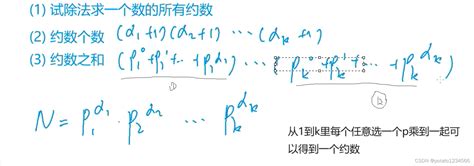 (1) 试除法求一个数的所有约数
(2) 约数个数 (α₁+1)(α₂+1) ⋯ (αₖ+1)
(3) 约数之和 (p₁⁰+p₁¹+⋯+p₁^α₁) ⋯ (pₖ⁰+pₖ¹+⋯+pₖ^αₖ)
① ⓚ
N = p₁^α₁ · p₂^α₂ ⋯ pₖ^αₖ
从1到k里每个任意选一个p乘到一起可
以得到一个约数